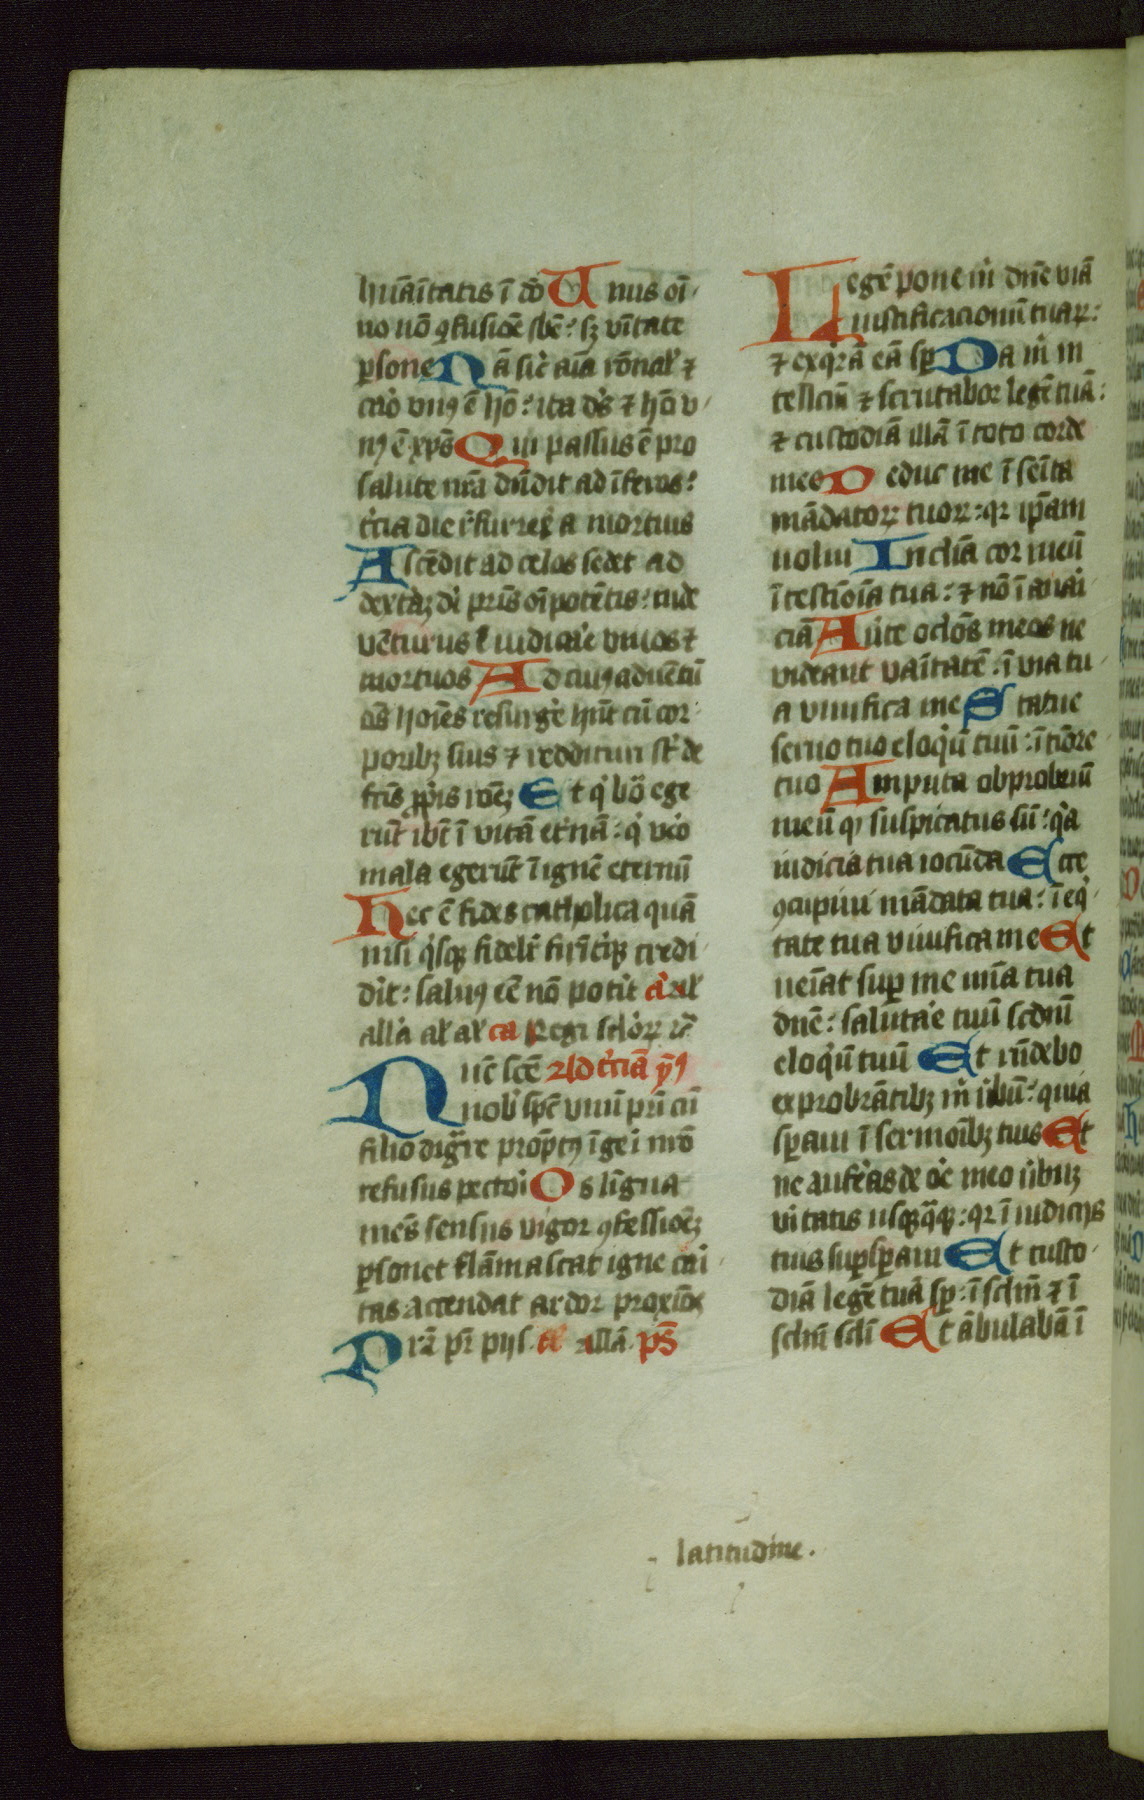 huāītatis ī dō Unus oī
no nō ꝯfusiōe sbē: sꝫ vītate
ꝑsone Nā sic̄ aīa rōnal̄ ⁊
caro vnꝰ ē hō: ita dꝰs ⁊ hō v
nꝰ ē xp̄s Qui passus ē pro
salute nr̄a dn̄dit ad īferos:
tc̄ia die r̄surrex̄ a mortuis
Ascēdit ad celos sedet ad
dextāꝫ dī pr̄is oīpotētis: inde
vēturus ē iudicar̄e viuos ⁊
mortuos Ad cuiꝰ aduētū
oēs hoīes resurgē hn̄t cū cor
poribꝫ suis ⁊ reddituri st̄ de
fcīs ꝓpis roēꝫ Et qͥ bō ege
rūt ibt̄ ī vitā etn̄ā: qͥ vo
mala egerūt ī ignē eternū
Hec ē fides catholica quā
nisi qͥsqꝫ fidelr̄ firīt̄qꝫ credi
dīt: saluꝰ eē nō potīt
all̄a al̄ al̄ ca Regi
Nūc scē Ad tc̄iā yꝰ
nob̄ spē vnū pr̄i cū
filio dig̈re prōptꝰ īgeī nr̄o
refusus pectoī Os līgua
mēs sensus vigor ꝯfessiōeꝫ
ꝑsonet flāmascat igne cāi
tas accendat ardor proxīos
Pr̄a pr̄ piis. al̄ allā. p̄s
Legē pone m̄ dn̄e viā
iustificacionū tuaꝝ:
⁊ exqͥrā eā sꝑ Da m̄ in
tellcm̄ ⁊ scrutabor legē tuā:
⁊ custodiā illā ī toto corde
meo Deduc me ī seīta
mādatoꝝ tuoꝝ: qꝛ ip̄am
uolui Inclīa cor meū
ī testīoīa tua: ⁊ nō ī auai
ciā Aūte oclōs meos ne
videant vaītatē: ī via tu
a viuifica me Statue
seruo tuo eloqͥū tuū: ī tīore
tuo Amputa obprobriū
meū qꝭ suspicatus sū: qͥa
iudicia tua iocūda Ecce
ꝯcupiui mādata tua: ī eqͥ
tate tua viuifica me Et
ueīat suꝑ me mīa tua
dn̄e: salutar̄e tuū scdm̄
eloqͥū tuū Et rn̄debo
exprobrātibꝫ m̄ ūbū: quia
sꝑaui ī sermoībꝫ tuis Et
ne aufeās de oē meo ūbuꝫ
vītatis usqꝫq̄qꝫ: qꝛ ī iudicijs
tuis suꝑsꝑaui Et custo
diā legē tuā sꝑ: ī sclm̄ ⁊ ī
sclm̄ scli Et ābulabā ī
latitudine.